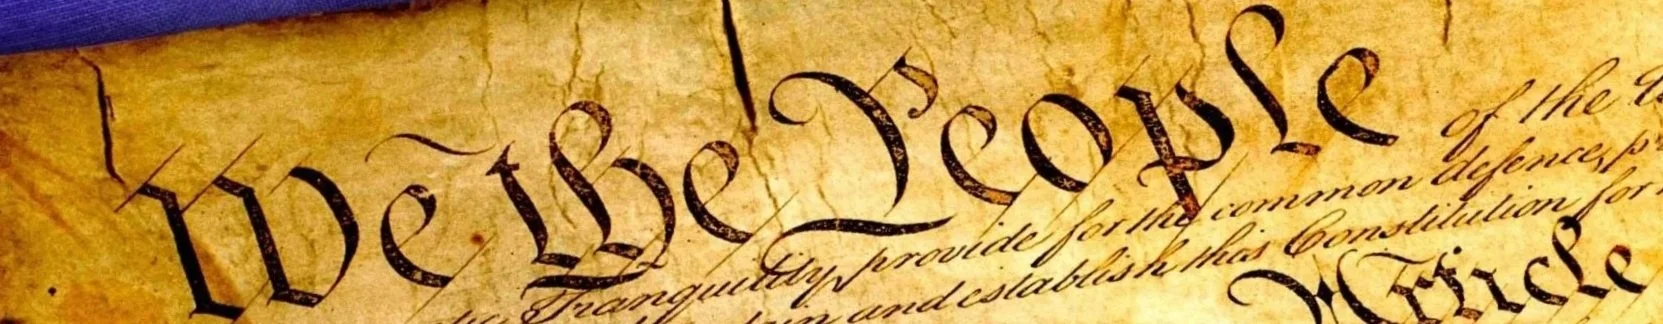 We the People of the
Tranquility, provide for the common defence,
and establish this Constitution for
Article